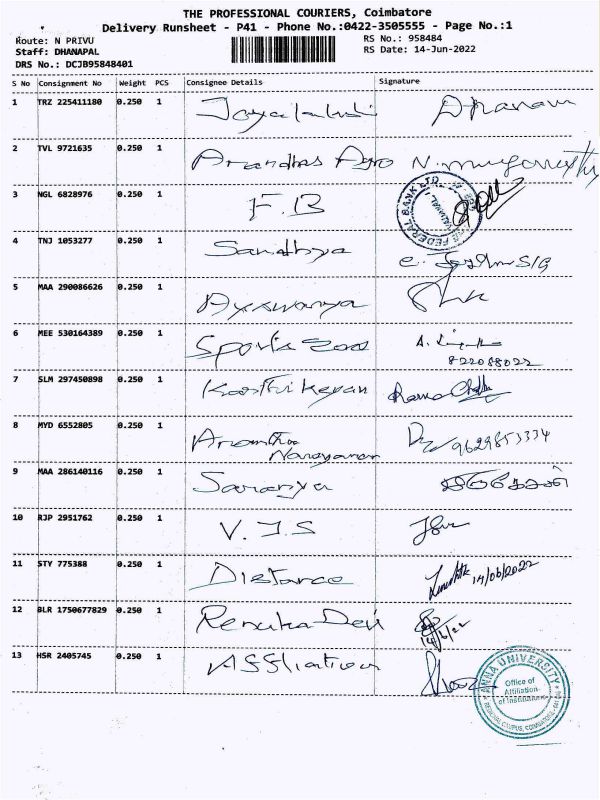 THE PROFESSIONAL COURIERS, Coimbatore
Delivery Runsheet - P41 - Phone No.:0422-3505555 - Page No.:1
Route: N PRIVU RS No.: 958484
Staff: DHANAPAL RS Date: 14-Jun-2022
DRS No.: DCJB95848401
S No Consignment No Weight PCS Consignee Details Signature
1 TRZ 225411180 0.250 1 Dhanam
2 TVL 9721635 0.250 1 Agro
3 NGL 6828976 0.250 1 F.B
FEDERAL BANK LTD.
4 TNJ 1053277 0.250 1 Sandhya
5 MAA 290086626 0.250 1
6 MEE 530164389 0.250 1 Sports Zoos
7 SLM 297450898 0.250 1
8 MYD 6552805 0.250 1 Narayanan 9629853334
9 MAA 286140116 0.250 1 Saranya
10 RJP 2951762 0.250 1 V.J.S
11 STY 775388 0.250 1 Distance 14/06/2022
12 BLR 1750677829 0.250 1 Renuka Devi 14/6/22
13 HSR 2405745 0.250 1
ANNA UNIVERSITY
Office of
Affiliation
of Institutions
REGIONAL CAMPUS, COIMBATORE